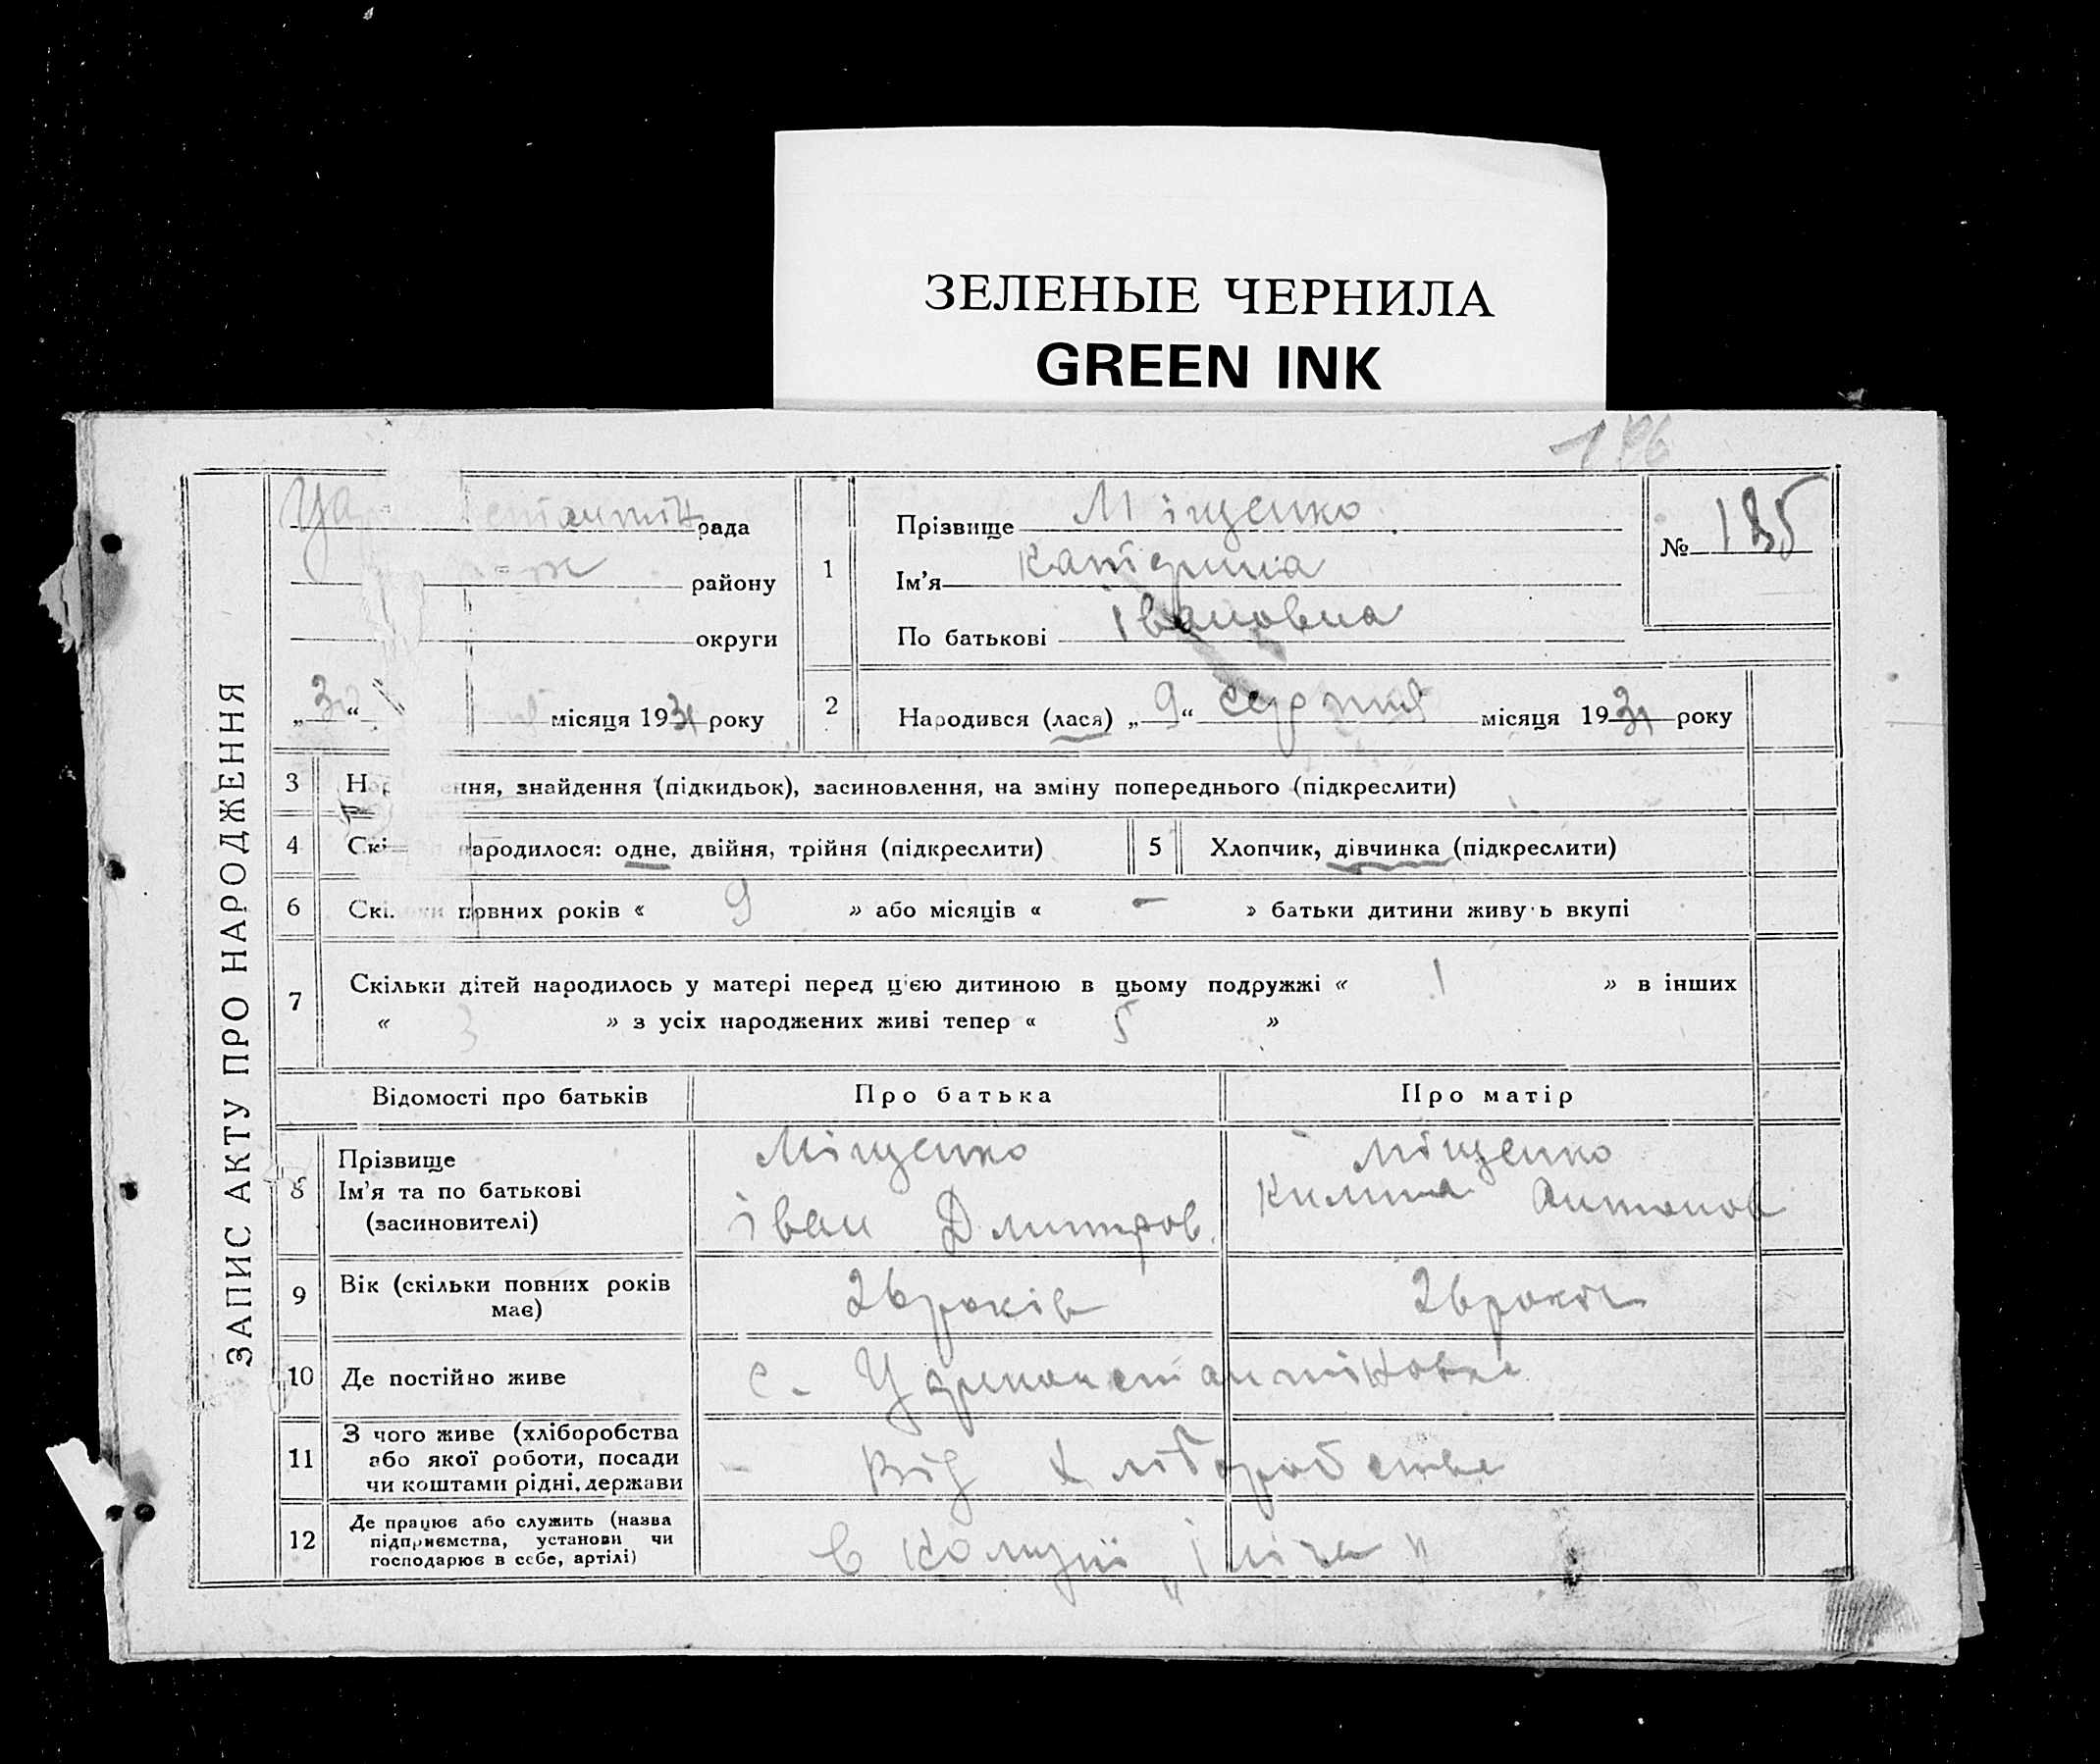 ЗЕЛЕНЫЕ ЧЕРНИЛА
GREEN INK
ЗАПИС АКТУ ПРО НАРОДЖЕННЯ
рада
району
округи
„3“ місяця 1931 року
1
Прізвище Міщенко
Ім'я Катерина
По батькові Івановна
№ 185
2
Народився (лася) „9“ серпня місяця 1931 року
3
знайдення (підкидьок), засиновлення, на зміну попереднього (підкреслити)
4
народилося: одне, двійня, трійня (підкреслити)
5
Хлопчик, дівчинка (підкреслити)
6
повних років « 9 » або місяців « - » батьки дитини живуть вкупі
7
Скільки дітей народилось у матері перед цією дитиною в цьому подружжі « 1 » в інших
« 3 » з усіх народжених живі тепер « 5 »
Відомості про батьків
Про батька
Про матір
8
Прізвище
Ім'я та по батькові
(засиновителі)
Міщенко
Іван Дмитров.
Міщенко
Килина Антонов
9
Вік (скільки повних років
має)
26 років
26 роки
10
Де постійно живе
с. Цареконстантиновка
11
З чого живе (хліборобства
або якої роботи, посади
чи коштами рідні, держави
- Від хліборобства
12
Де працює або служить (назва
підприємства, установи чи
господарює в себе, артілі)
в комуні „Ілліча"